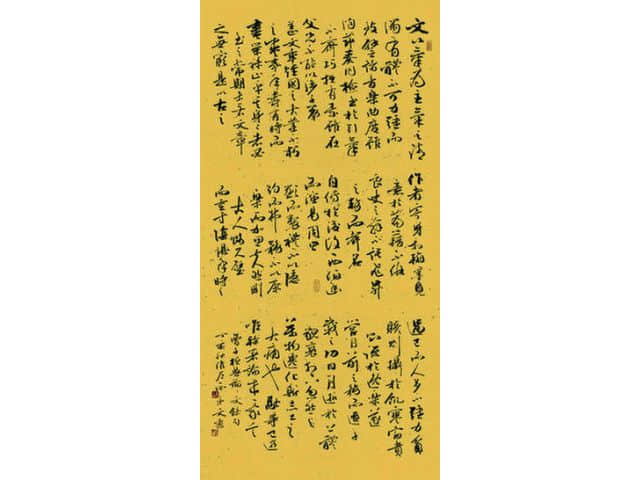 文以氣為主氣之清
濁有體不可力強而
致譬諸音樂曲度雖
均節奏同檢至於引氣
不齊巧拙有素雖在
父兄不能以移子弟
蓋文章經國之大業不朽
之盛事年壽有時而
盡榮樂止乎其身二者必
至之常期未若文章
之無窮是以古之
作者寄身於翰墨見
意於篇籍不假
良史之辭不託飛馳
之勢而聲名
自傳於後故西伯幽
而演易周旦
顯而制禮不以隱
約而弗務不以康
樂而加思夫然則
古人賤尺璧
而重寸陰懼乎時之
過已而人多不強力貧
賤則懾於飢寒富貴
則流於逸樂遂
營目前之務而遺千
載之功日月逝於上體
貌衰於下忽然與
萬物遷化斯志士之
大痛也融等已逝
唯幹著論成一家言